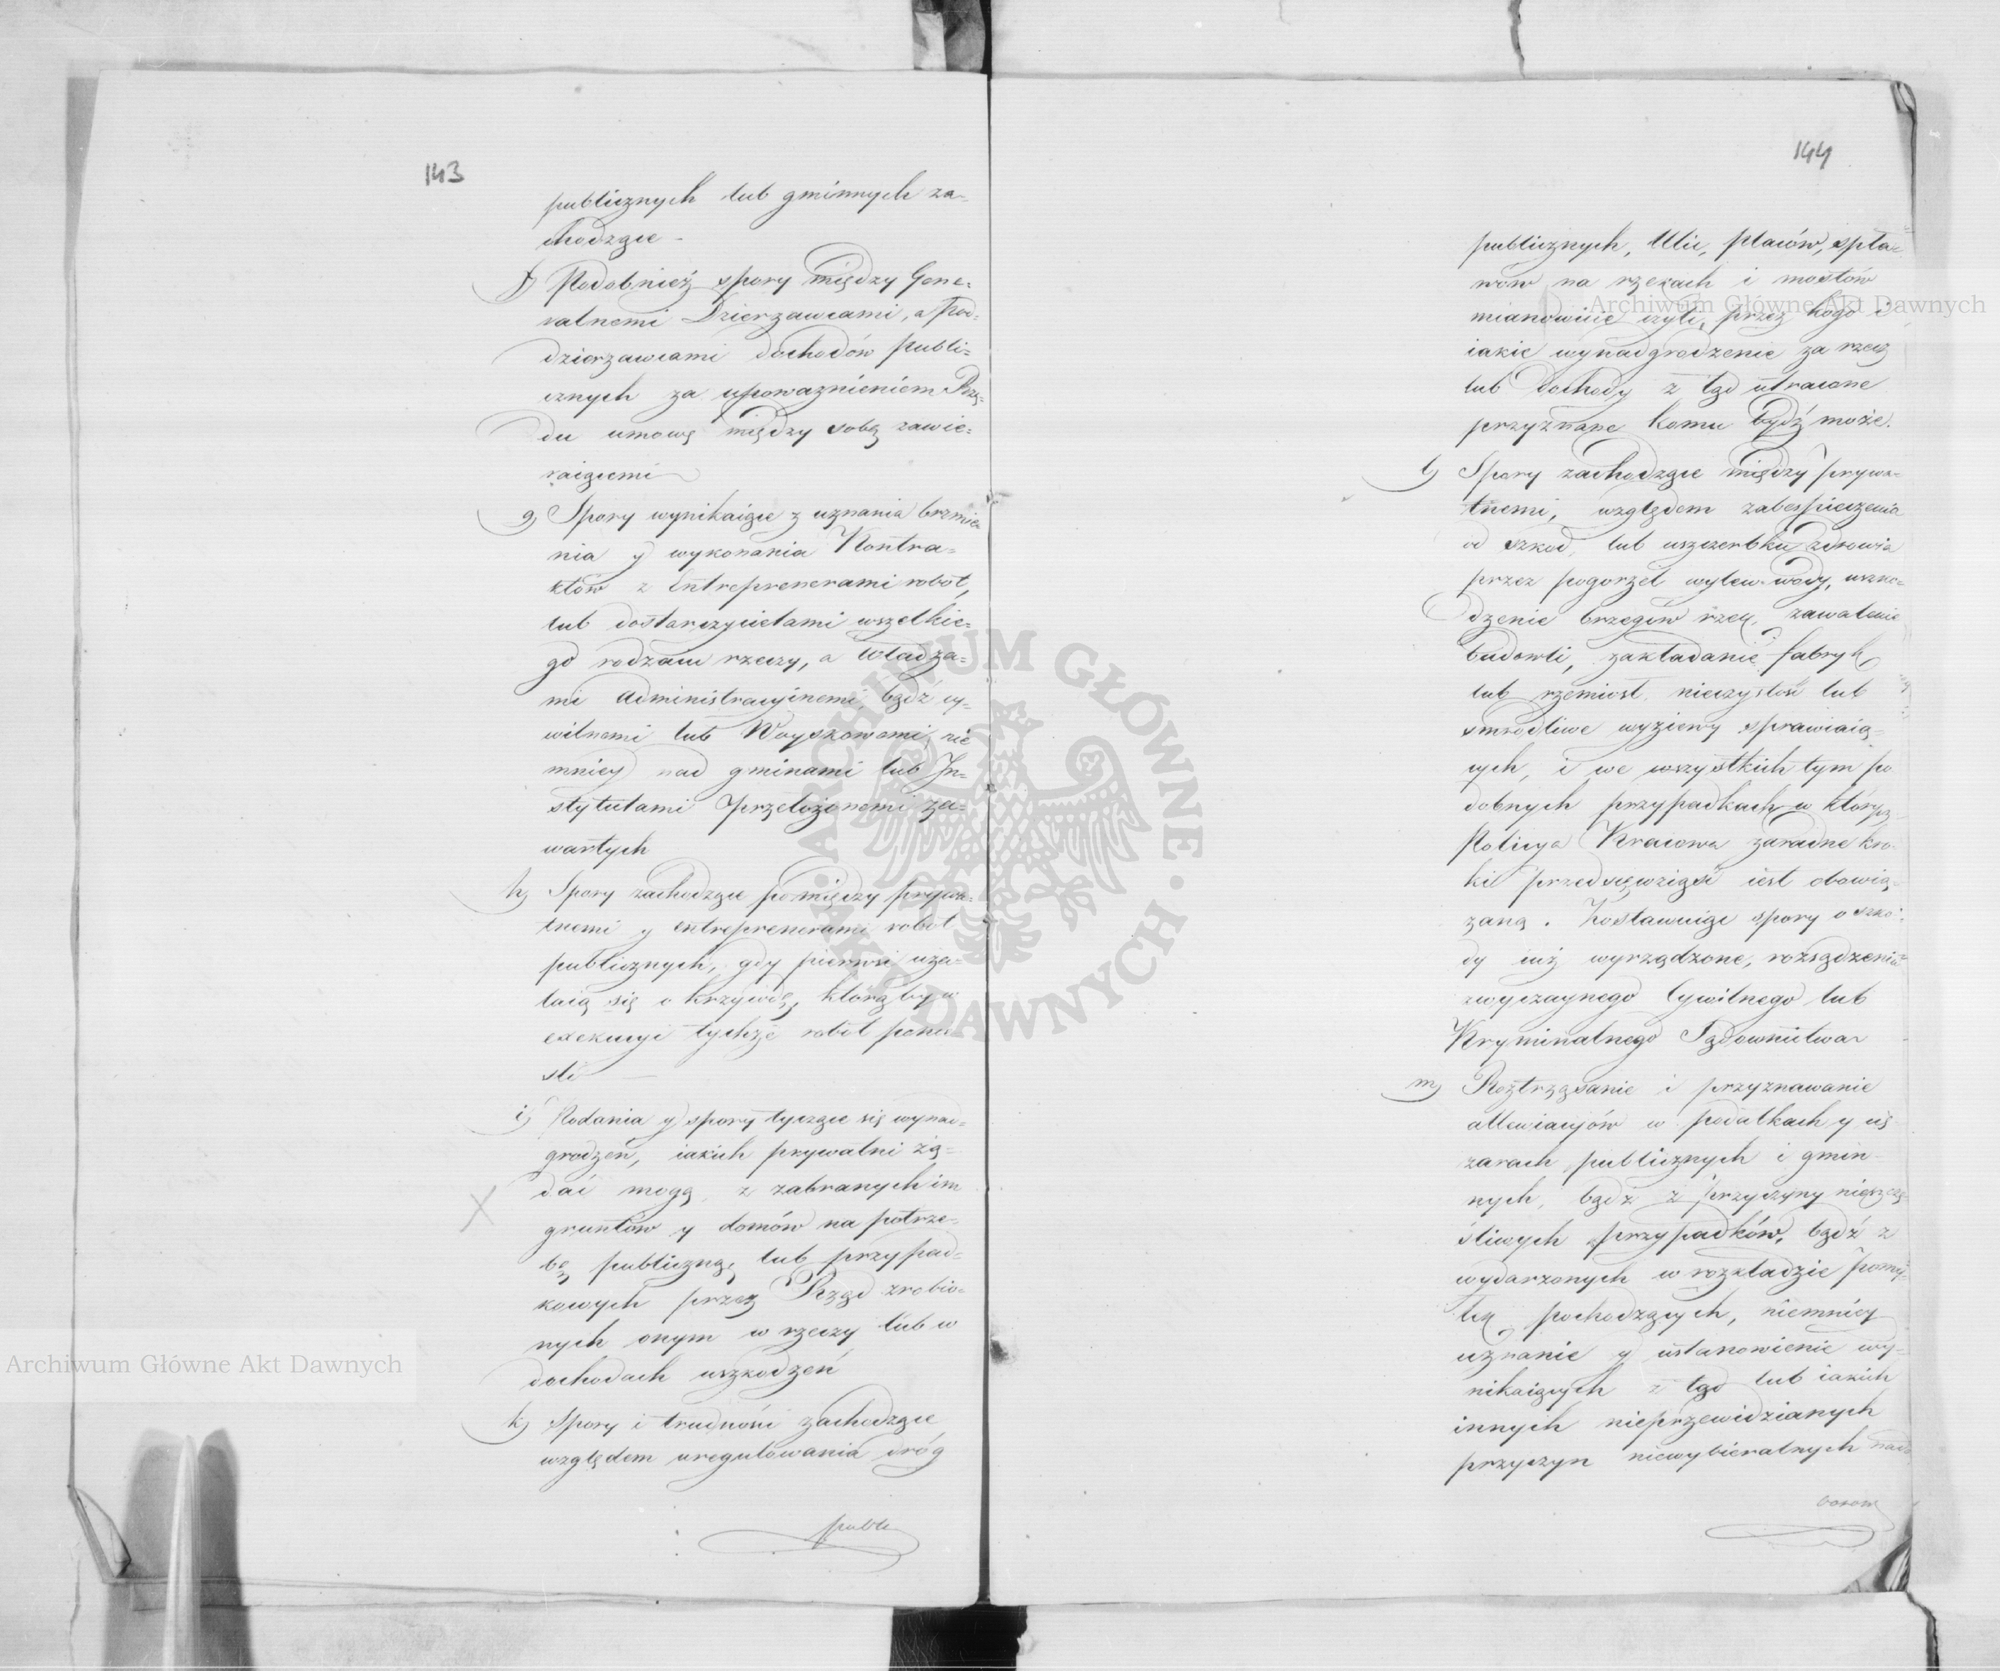 143
publicznych lub gminnych za-
chodzące -
f) Podobnież spory między Gene-
ralnemi Dzierzawcami, a Pod-
dzierzawcami dochodów publi-
cznych za upoważnieniem Rzą-
du umowę między sobą zawie-
raiącemi
g) Spory wynikaiące z uznania brzmie-
nia y wykonania Kontra-
któw z Entreprenerami robót,
lub dostarczycielami wszelkie-
go rodzaiu rzeczy, a Władza-
mi administracyinemi, bądź cy-
wilnemi lub Woyskowemi, nie
mniey nad gminami lub In-
stytutami przełożonemi za-
wartych
h) Spory zachodzące pomiędzy prywa-
tnemi y entreprenerami robót
publicznych, gdy pierwsi uża-
laią się o krzywdę, którąby w
exekucyi tychże robót ponie-
śli —
i) Podania y spory tyczące się wynad-
grodzeń, iakich prywatni żą-
dać mogą, z zabranych im
gruntów y domów na potrze-
bę publiczną, lub przypad-
kowych przez Rząd zrobio-
nych onym w rzeczy lub w
dochodach uszkodzeń
k) Spory i trudności zachodzące
względem uregulowania dróg
publi
144
publicznych, Ulic, placów, spła-
wów na rzekach i mostów
mianowicie czyli, przez kogo i
iakie wynadgrodzenie za rzecz
lub dochody z tąd utracone
przyznane komu bydź może.
l) Spory zachodzące między prywa-
tnemi, względem zabespieczenia
od szkod, lub uszczerbku zdrowia
przez pogorzel wylew wody, uszko-
dzenie brzegów rzek, zawalenie
budowli, zakładanie fabryk
lub rzemiosł nieczystość lub
smrodliwe wyziewy sprawiaią-
cych, i we wszystkich tym po
dobnych przypadkach w których
Policya Kraiowa zaradne kro-
ki przedsięwziąść iest obowią-
zaną. Zostawuiąc spory o szko-
dy iuż wyrządzone, rozsądzeniu
zwyczaynego Cywilnego lub
Kryminalnego Sądownictwa
m) Roztrząsanie i przyznawanie
allewiacyów w podatkach y cię
żarach publicznych i gmin-
nych, bądź z przyczyny nieszczę
śliwych przypadków, bądź z
wydarzonych w rozkładzie pomy-
łek pochodzących, niemniey
uznanie y ustanowienie wy-
nikaiących z tąd lub iakich
innych nieprzewidzianych
przyczyn niewybieralnych
Archiwum Główne Akt Dawnych
Archiwum Główne Akt Dawnych
ARCHIWUM GŁÓWNE · AKT DAWNYCH ·